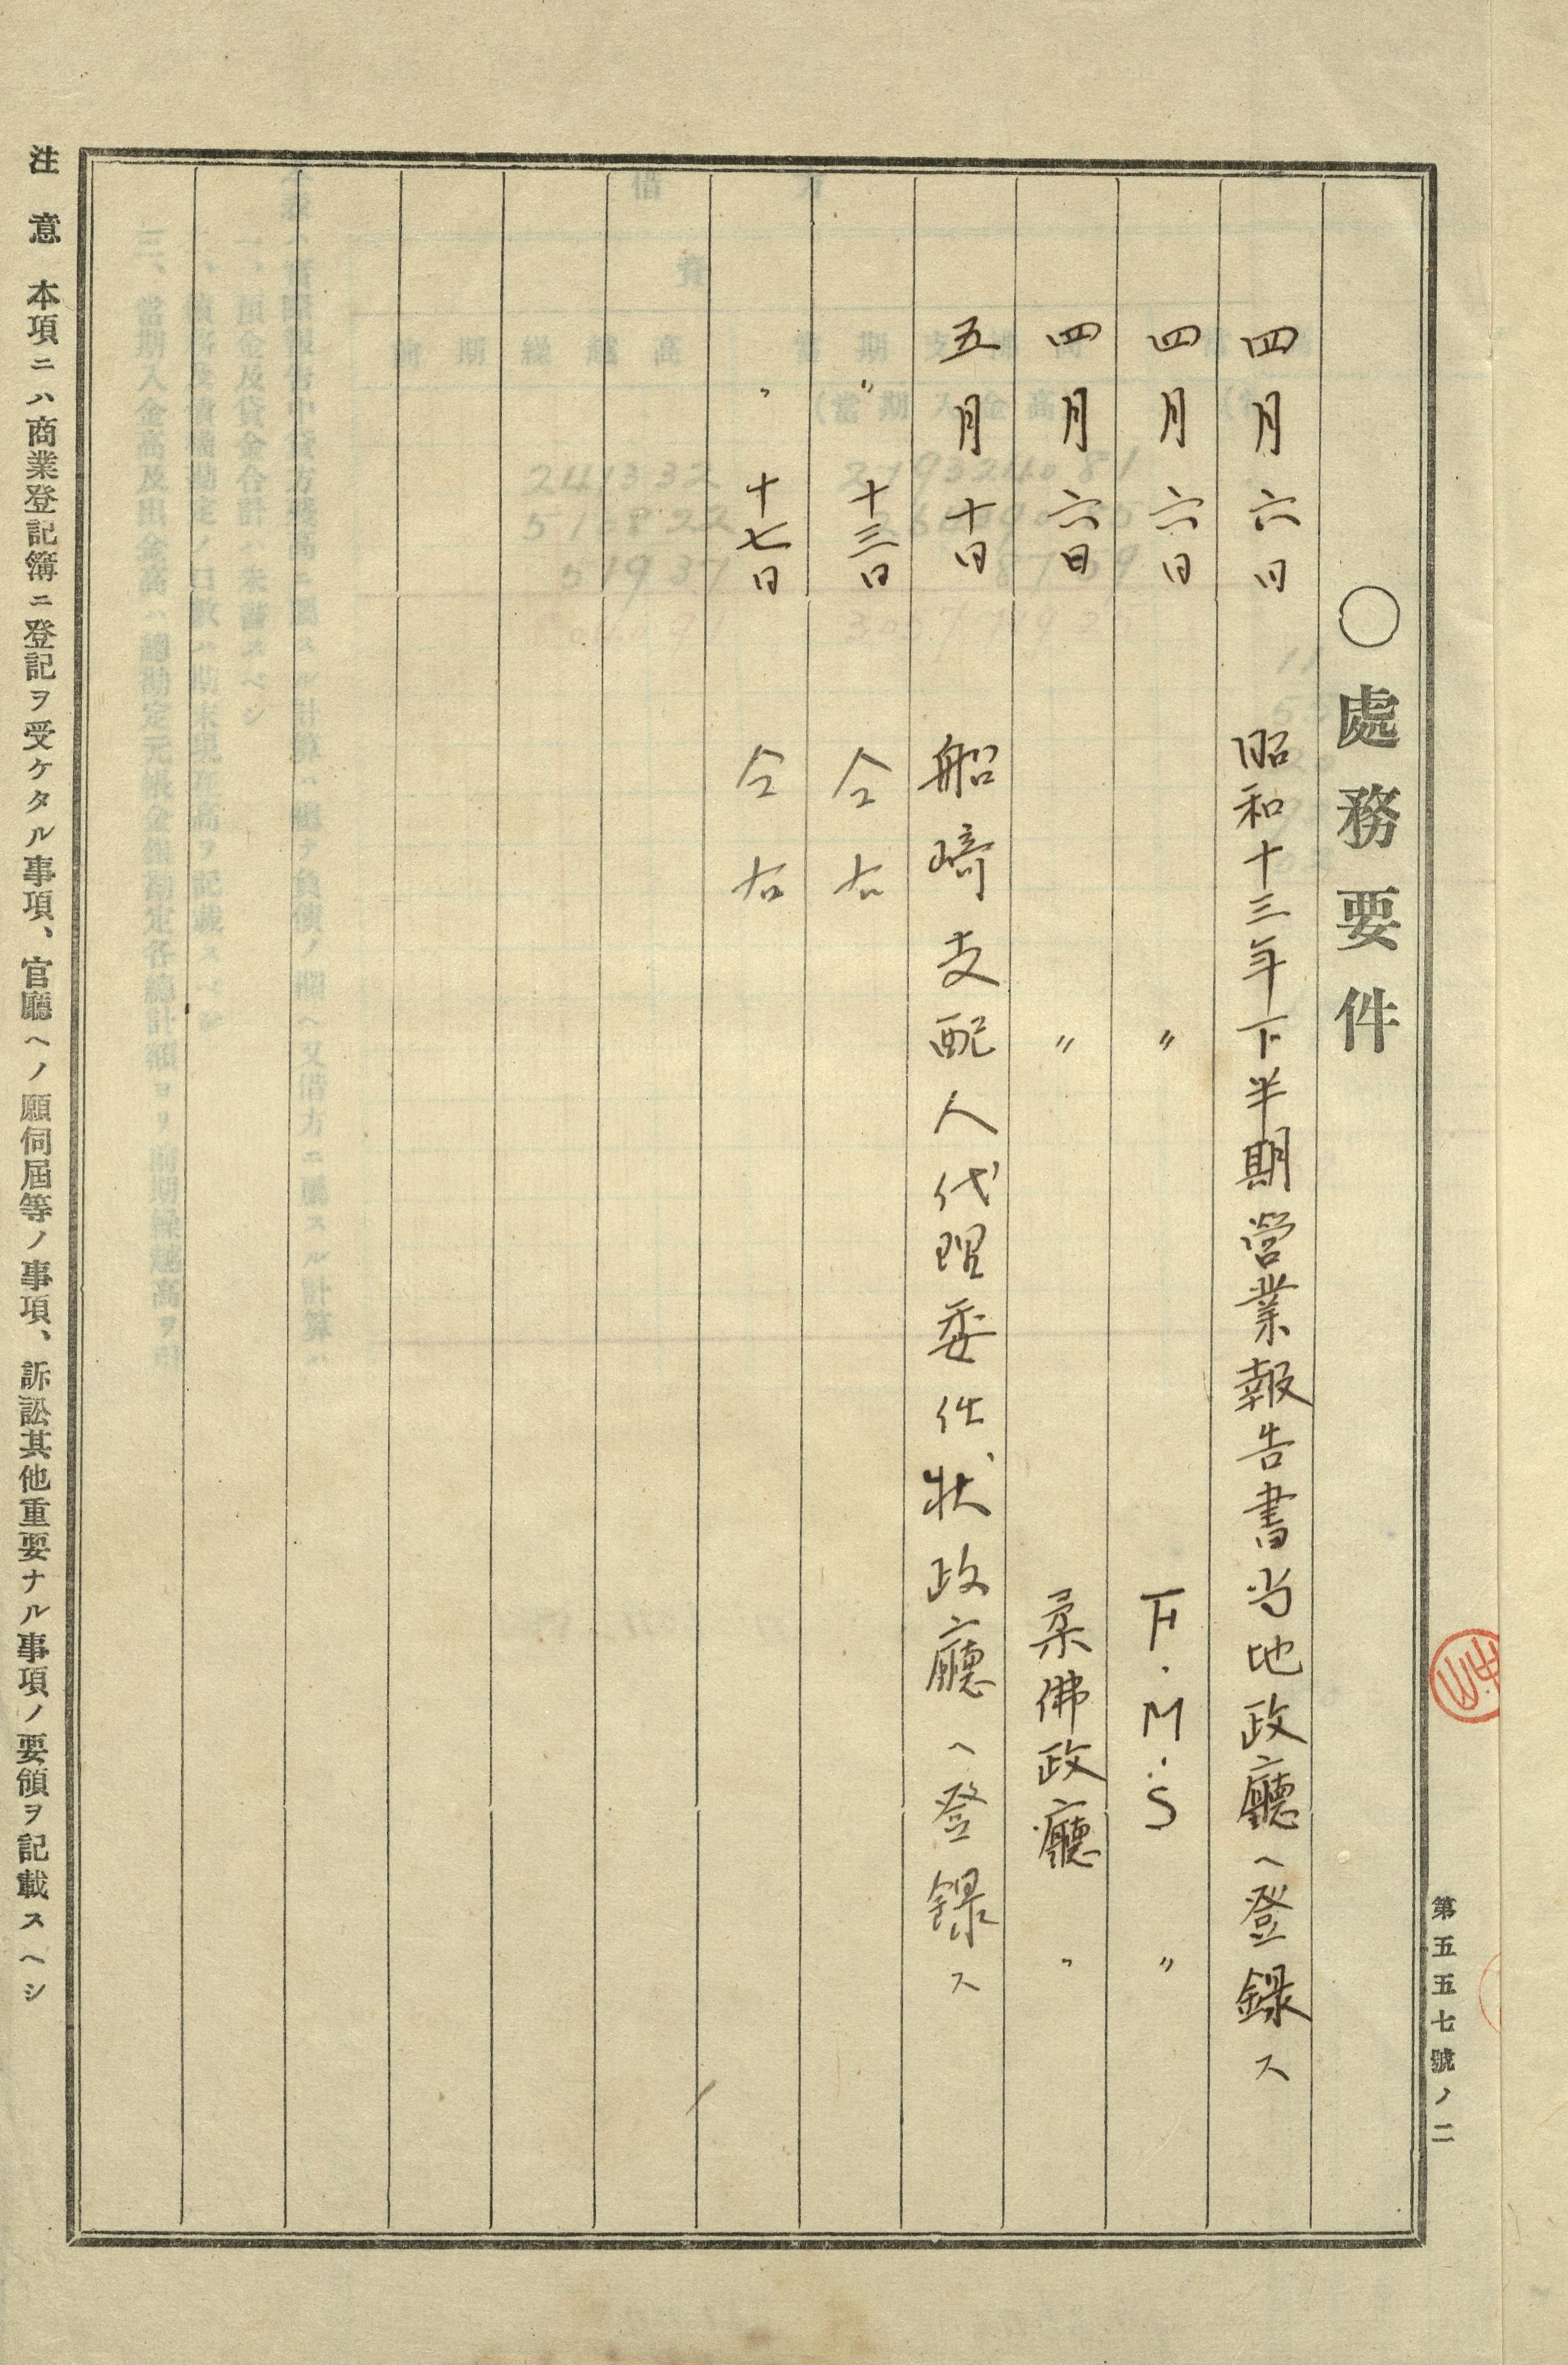 第五五七號ノ二
〇處務要件
四月六日 昭和十三年下半期営業報告書当地政廳ヘ登録ス
四月六日 〃 F.M.S 〃
四月六日 〃 柔佛政廳 〃
五月十日 船﨑支配人代理委任状政廳ヘ登録ス
〃 十三日 仝右
〃 十七日 仝右
注意 本項ニハ商業登記簿ニ登記ヲ受ケタル事項、官廳ヘノ願伺屆等ノ事項、訴訟其他重要ナル事項ノ要領ヲ記載スヘシ